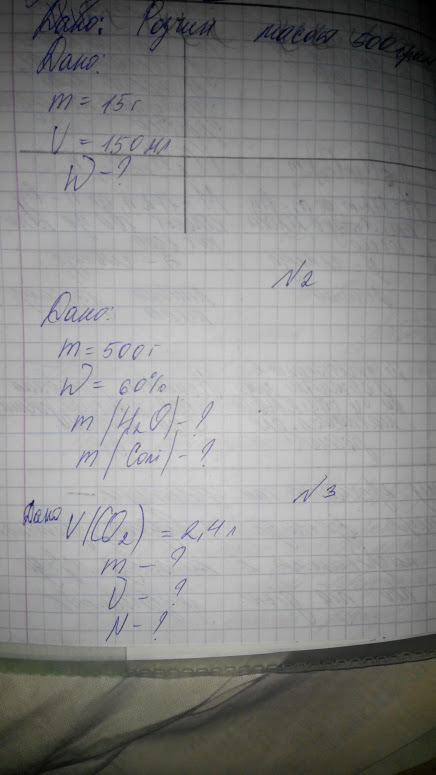 Дано: Розчин маса 500 грам
Дано:
m = 15 г
V = 150 мл
W - ?
N2
Дано:
m = 500 г
W = 60%
m (H₂O) - ?
m (Солі) - ?
N3
Дано V(CO₂) = 2,4 л
m - ?
ν - ?
N - ?